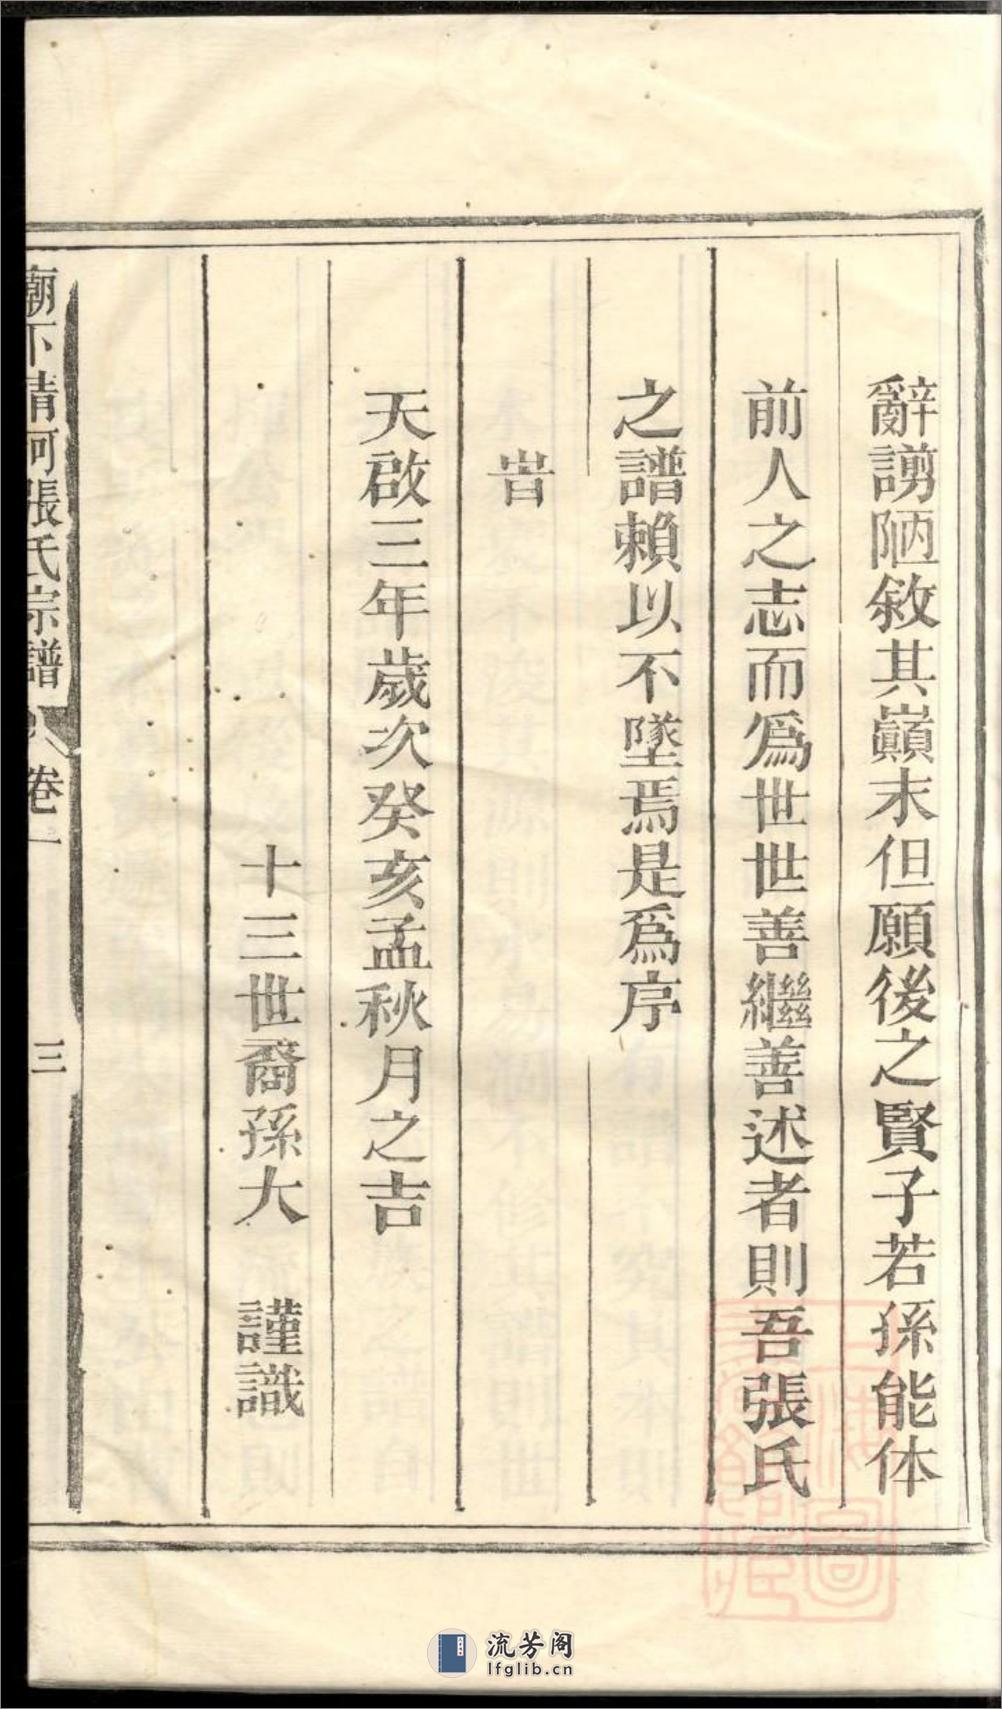 辭謭陋敘其巔末但願後之賢子若孫能体
前人之志而爲世世善繼善述者則吾張氏
之譜賴以不墜焉是爲序
旹
天啟三年歲次癸亥孟秋月之吉
十三世裔孫大 謹識
廟下清河張氏宗譜 卷一 三
流芳阁
lfglib.cn